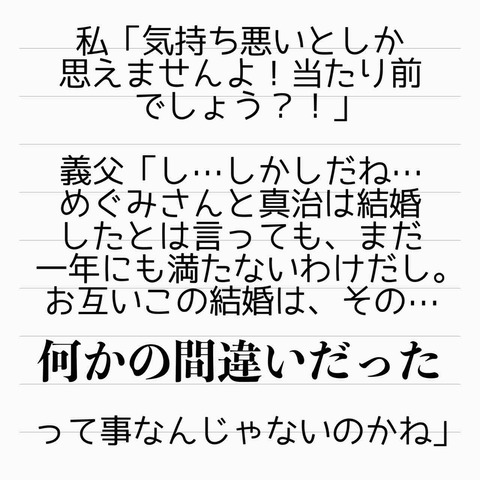 私「気持ち悪いとしか
思えませんよ！当たり前
でしょう？！」
義父「し…しかしだね…
めぐみさんと真治は結婚
したとは言っても、まだ
一年にも満たないわけだし。
お互いこの結婚は、その…
何かの間違いだった
って事なんじゃないのかね」